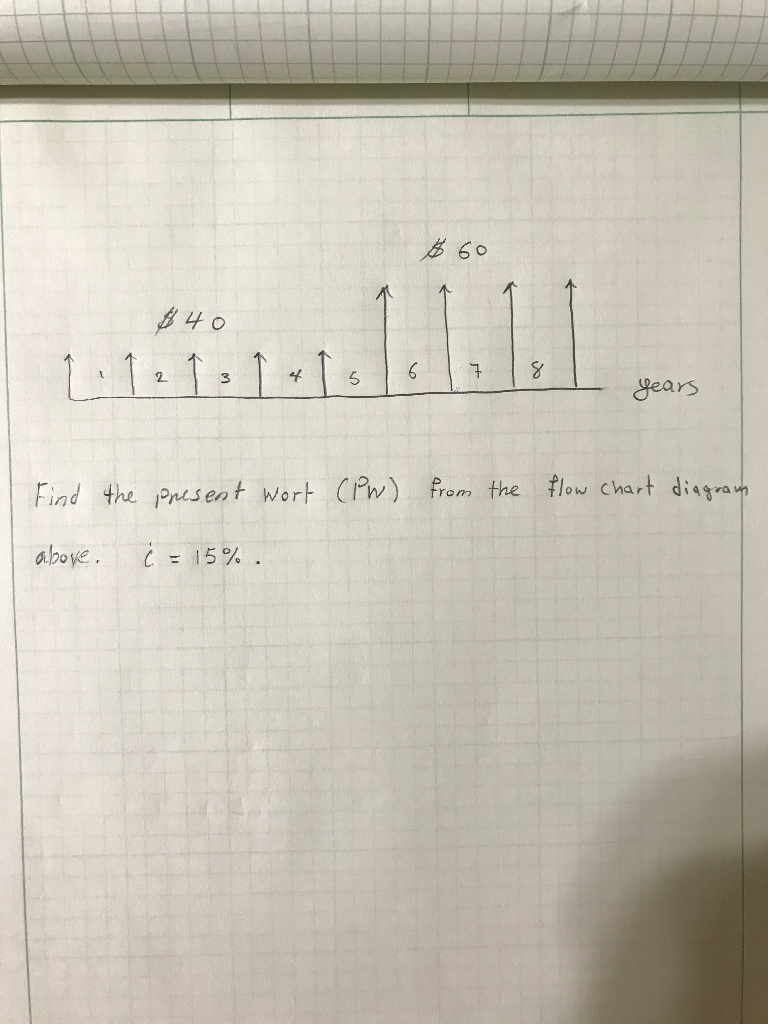 $ 60
$ 40
1 2 3 4 5 6 7 8 years
Find the present wort (PW) from the flow chart diagram
above. i = 15% .